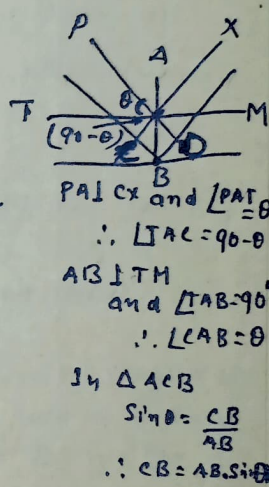 P
X
A
θ
T
M
(90-θ)
C
D
B
PA⊥CX and ∠PAT=θ
∴ ∠TAC=90-θ
AB⊥TM
and ∠TAB=90°
∴ ∠CAB=θ
In Δ ACB
Sinθ = CB/AB
∴ CB=AB.Sinθ